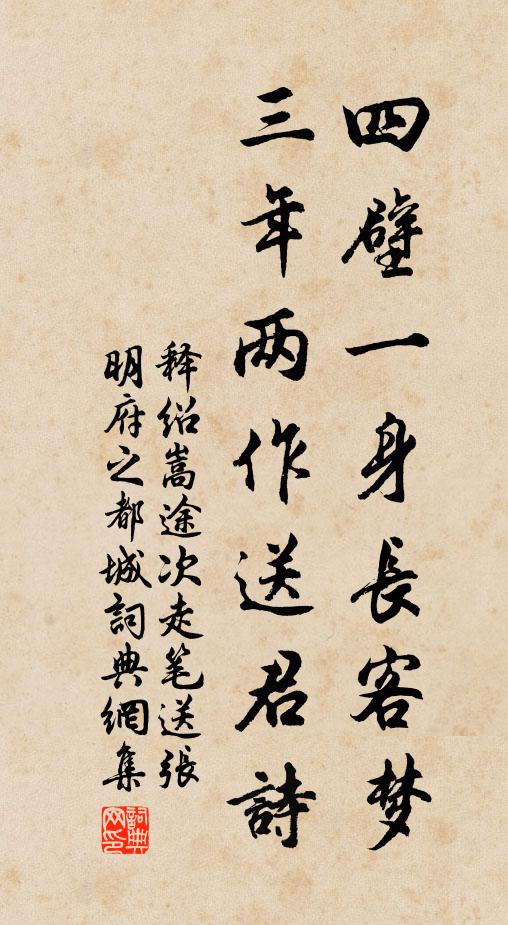 四壁一身長客梦
三年两作送君詩
释紹嵩途次走笔送張
明府之都城詞典網集
詞典
网印